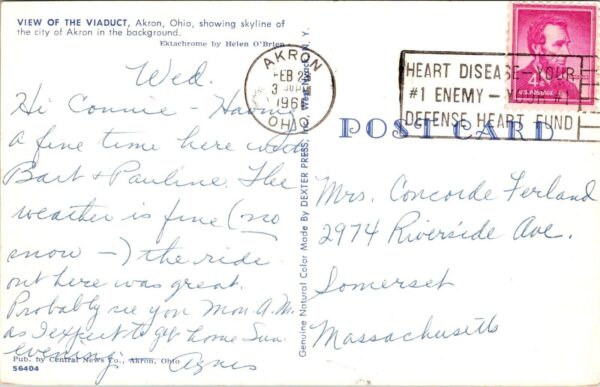 VIEW OF THE VIADUCT, Akron, Ohio, showing skyline of
the city of Akron in the background.
Ektachrome by Helen O'Brien
Wed.
Hi Connie - Having
a fine time here with
Bart & Pauline. The
weather is fine (no
snow -) the ride
out here was great.
Probably see you Mon A.M.
as I expect to get home Sun.
evening. Agnes
Pub. by Central News Co., Akron, Ohio
56404
Genuine Natural Color Made By DEXTER PRESS, Inc. West Nyack, N. Y.
AKRON
FEB 2
3
196
OHIO
HEART DISEASE-YOUR
#1 ENEMY - YOUR #1
DEFENSE HEART FUND
4¢
U.S. POSTAGE
POST CARD
Mrs. Concorde Ferland
2974 Riverside Ave.
Somerset
Massachusetts